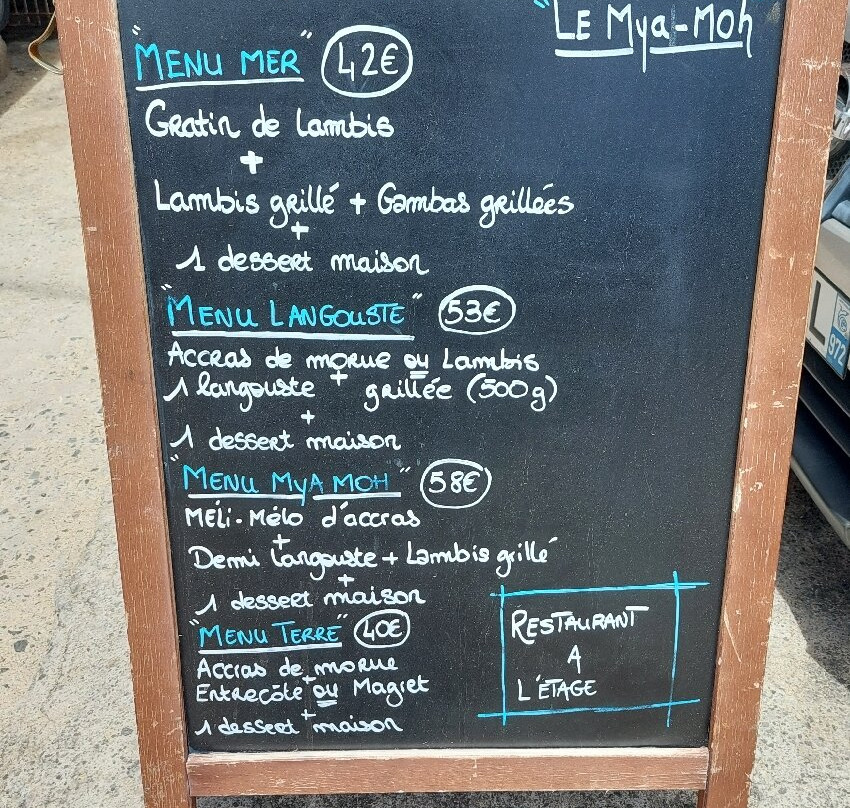 "LE Mya-Moh
"MENU MER" 42€
Gratin de Lambis
+
Lambis grillé + Gambas grillées
+
1 dessert maison
"MENU LANGOUSTE" 53€
Accras de morue ou Lambis
+
1 langouste grillée (500g)
+
1 dessert maison
"MENU MYA MOH" 58€
MÉLI-MÉLO d'accras
+
Demi langouste + Lambis grillé
+
1 dessert maison
"MENU TERRE" 40€
Accras de morue
+
Entrecôte ou Magret
+
1 dessert maison
RESTAURANT
A
L'ÉTAGE
L
972